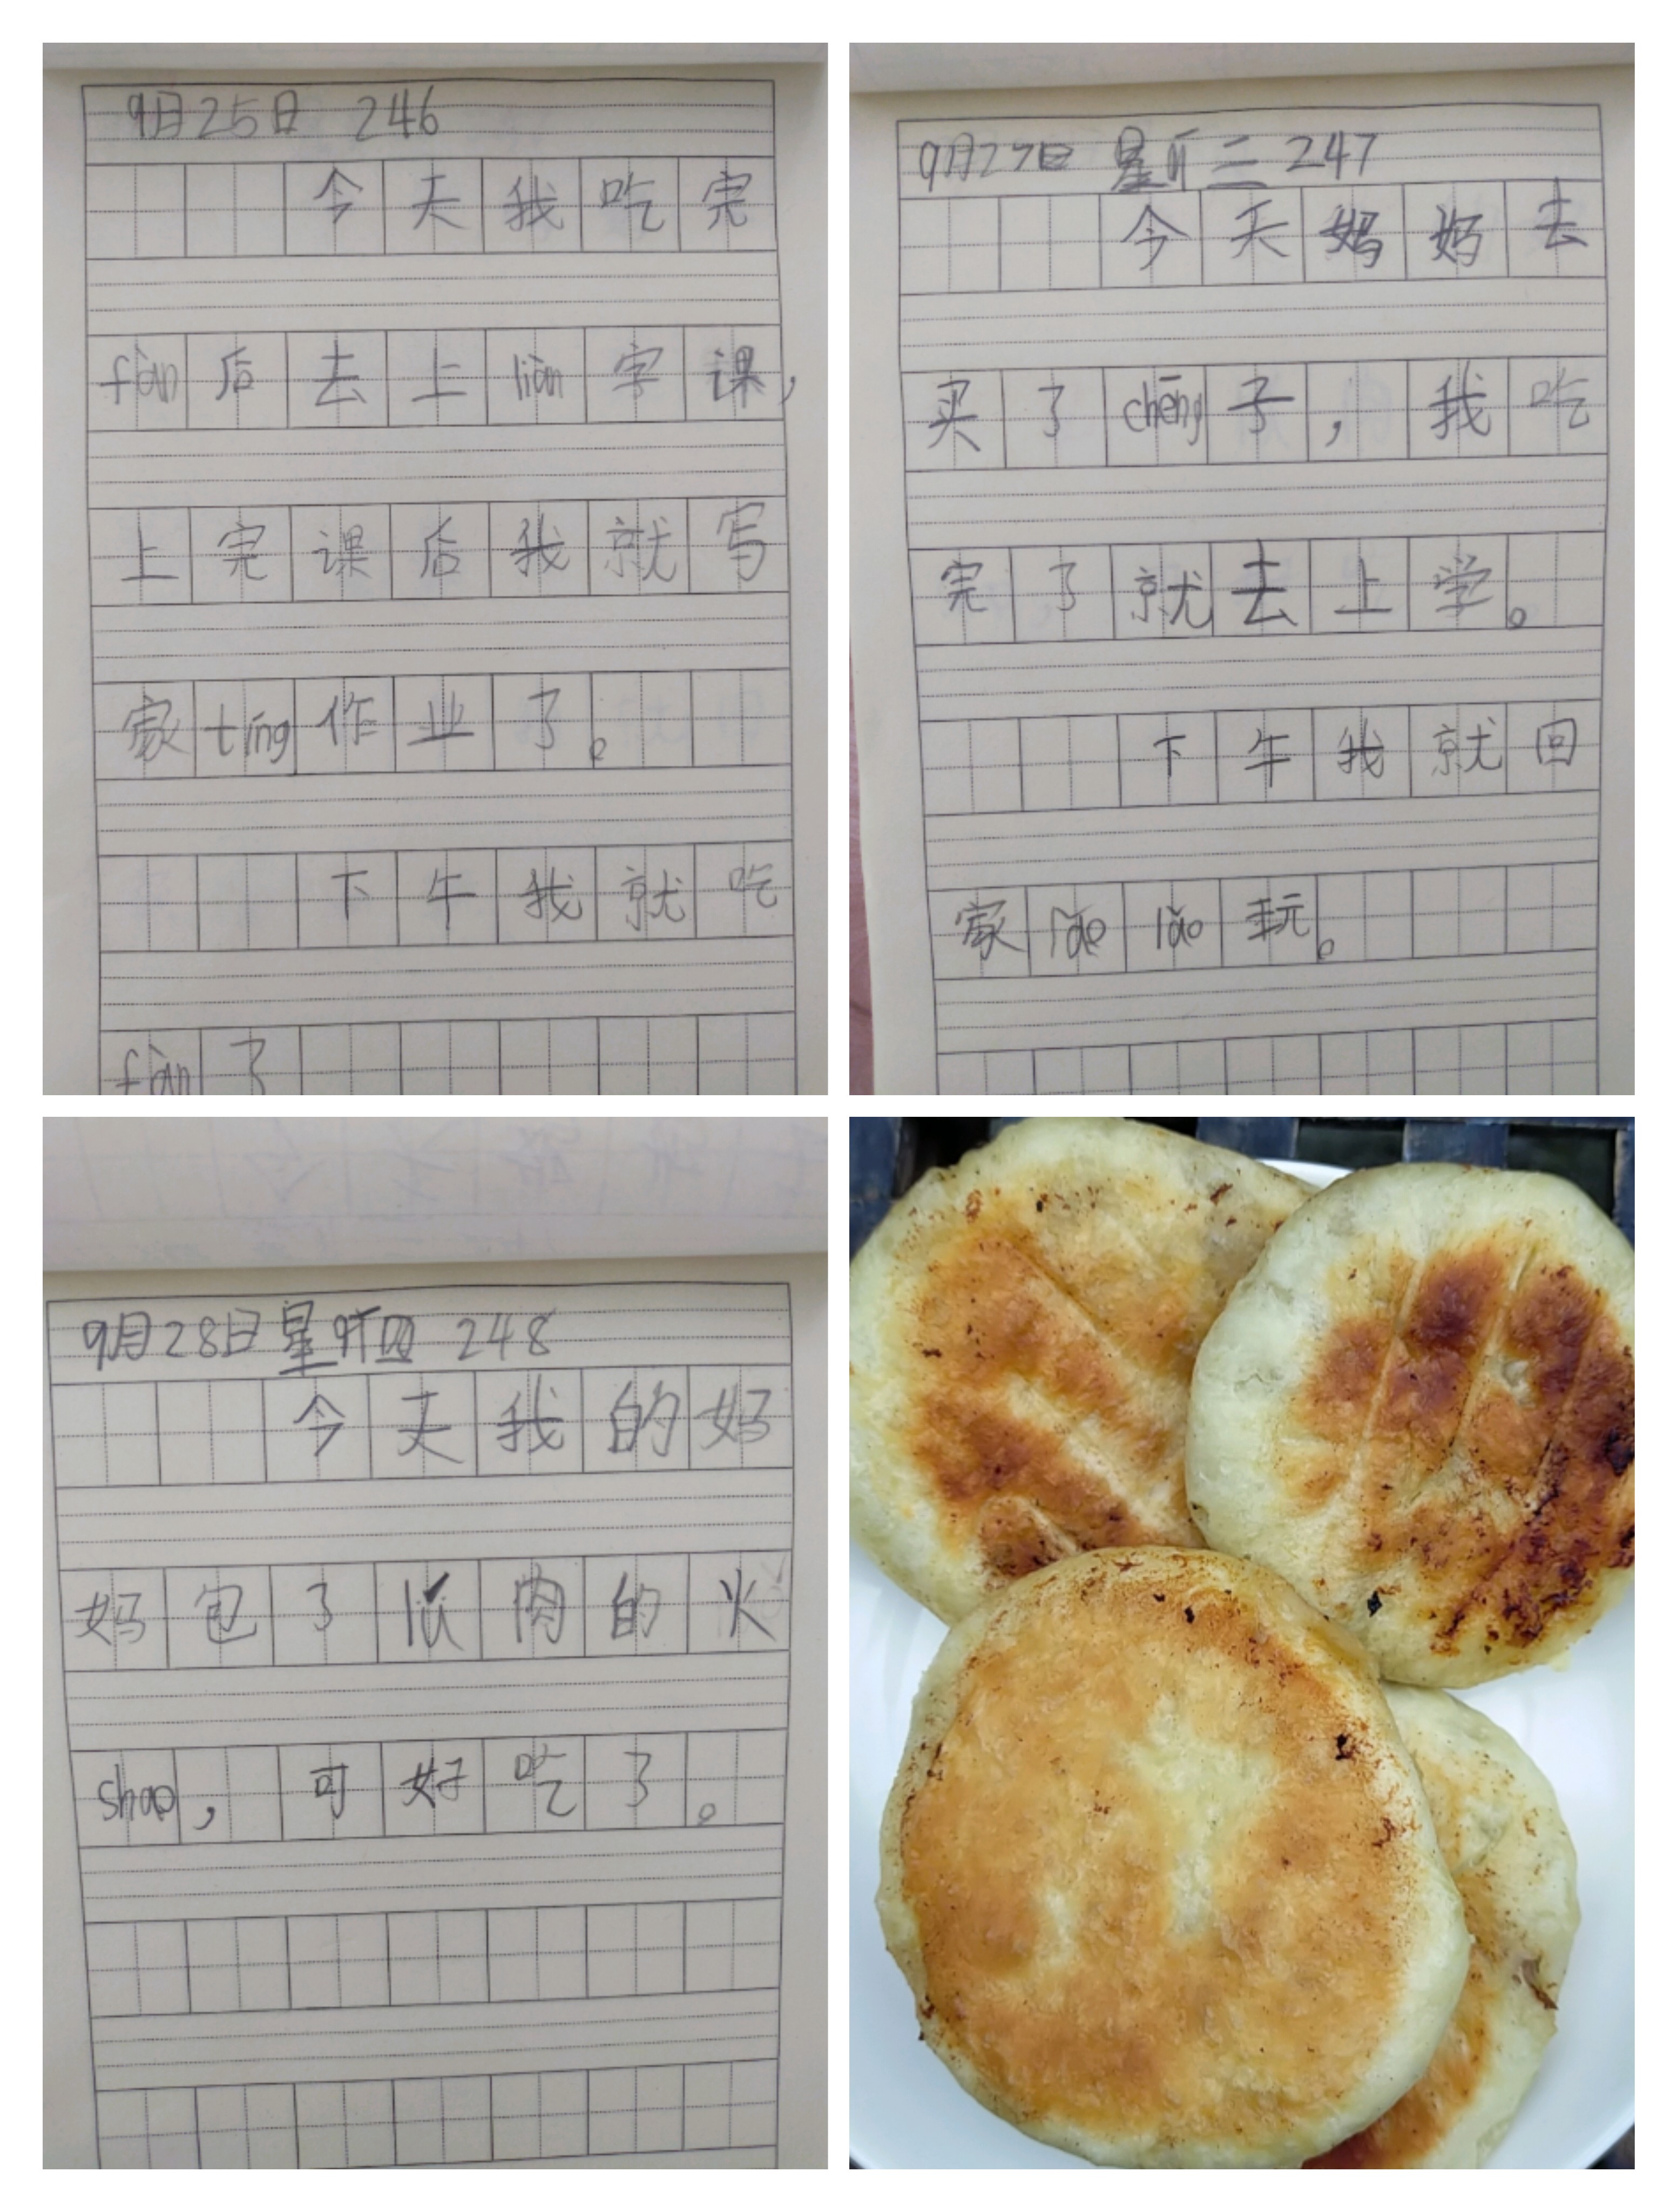 9月25日 246
今天我吃完
fàn后去上liàn字课，
上完课后我就写
家tíng作业了。
下午我就吃
fàn了
9月27日 星期三 247
今天妈妈去
买了chéng子，我吃
完了就去上学。
下午我就回
家lǎo lao玩。
9月28日星期四 248
今天我的妈
妈包了lǘ肉的火
shao，可好吃了。